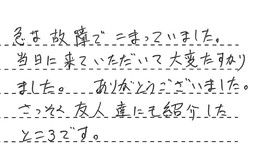 急な故障でこまっていました。
当日に来ていただいて大変たすかり
ました。 ありがとうございました。
さっそく友人達にも紹介した
ところです。